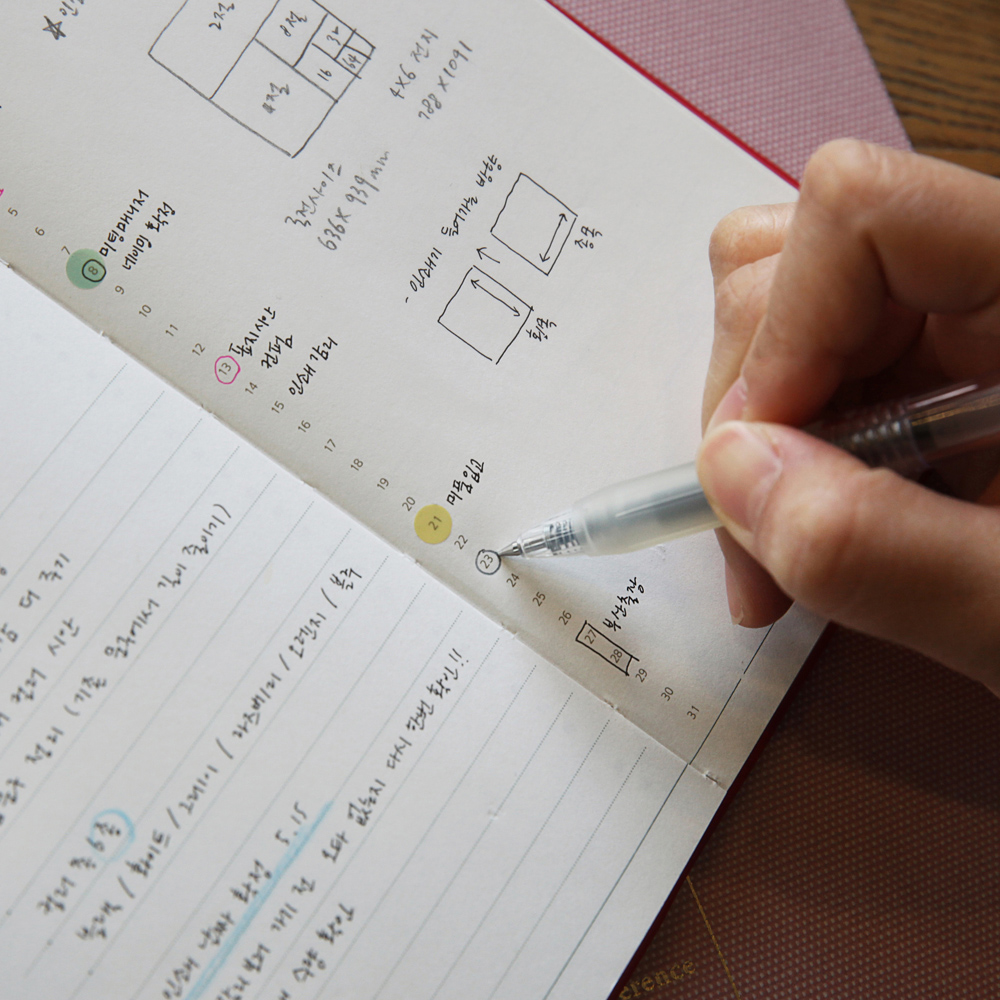 2절
8절
32
4절
16
64
4X6 전지
788 X 1091
국전사이즈
636 X 939 mm
- 인쇄기 들어가는 방향
종목
횡목
5
6
7
8 미팅매니저
네이밍 확정
9
10
11
12
13 표지시안
컨펌
14
15 인쇄 감리
16
17
18
19
20
21 미품입고
22
23
24
25
26
27 부산출장
28
29
30
31
더 주기
컬러 시안
정리 (기존 공극에서 같이 줄이기)
컬러 총 6종
블랙 / 화이트 / 그레이 / 라즈베리 / 오렌지 / 블루
인쇄 날짜 확정 5.15
가기 전 오타 없는지 다시 한번 확인!!
수량 확인
erence